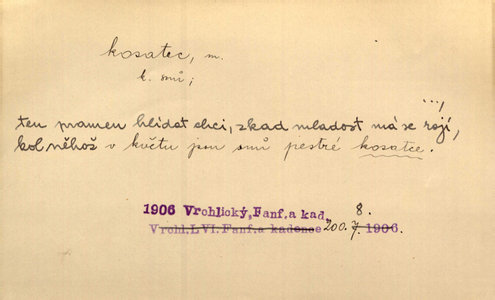 kosatec, m.
k. snů;
...,
ten pramen hlídat chci, zkad mladost má se rojí,
kol něhož v květu jsou snů pestré kosatce.
1906 Vrchlický, Fanf. a kad. 8.
Vrchl. LVI. Fanf. a kadence 200. 7. 1906.